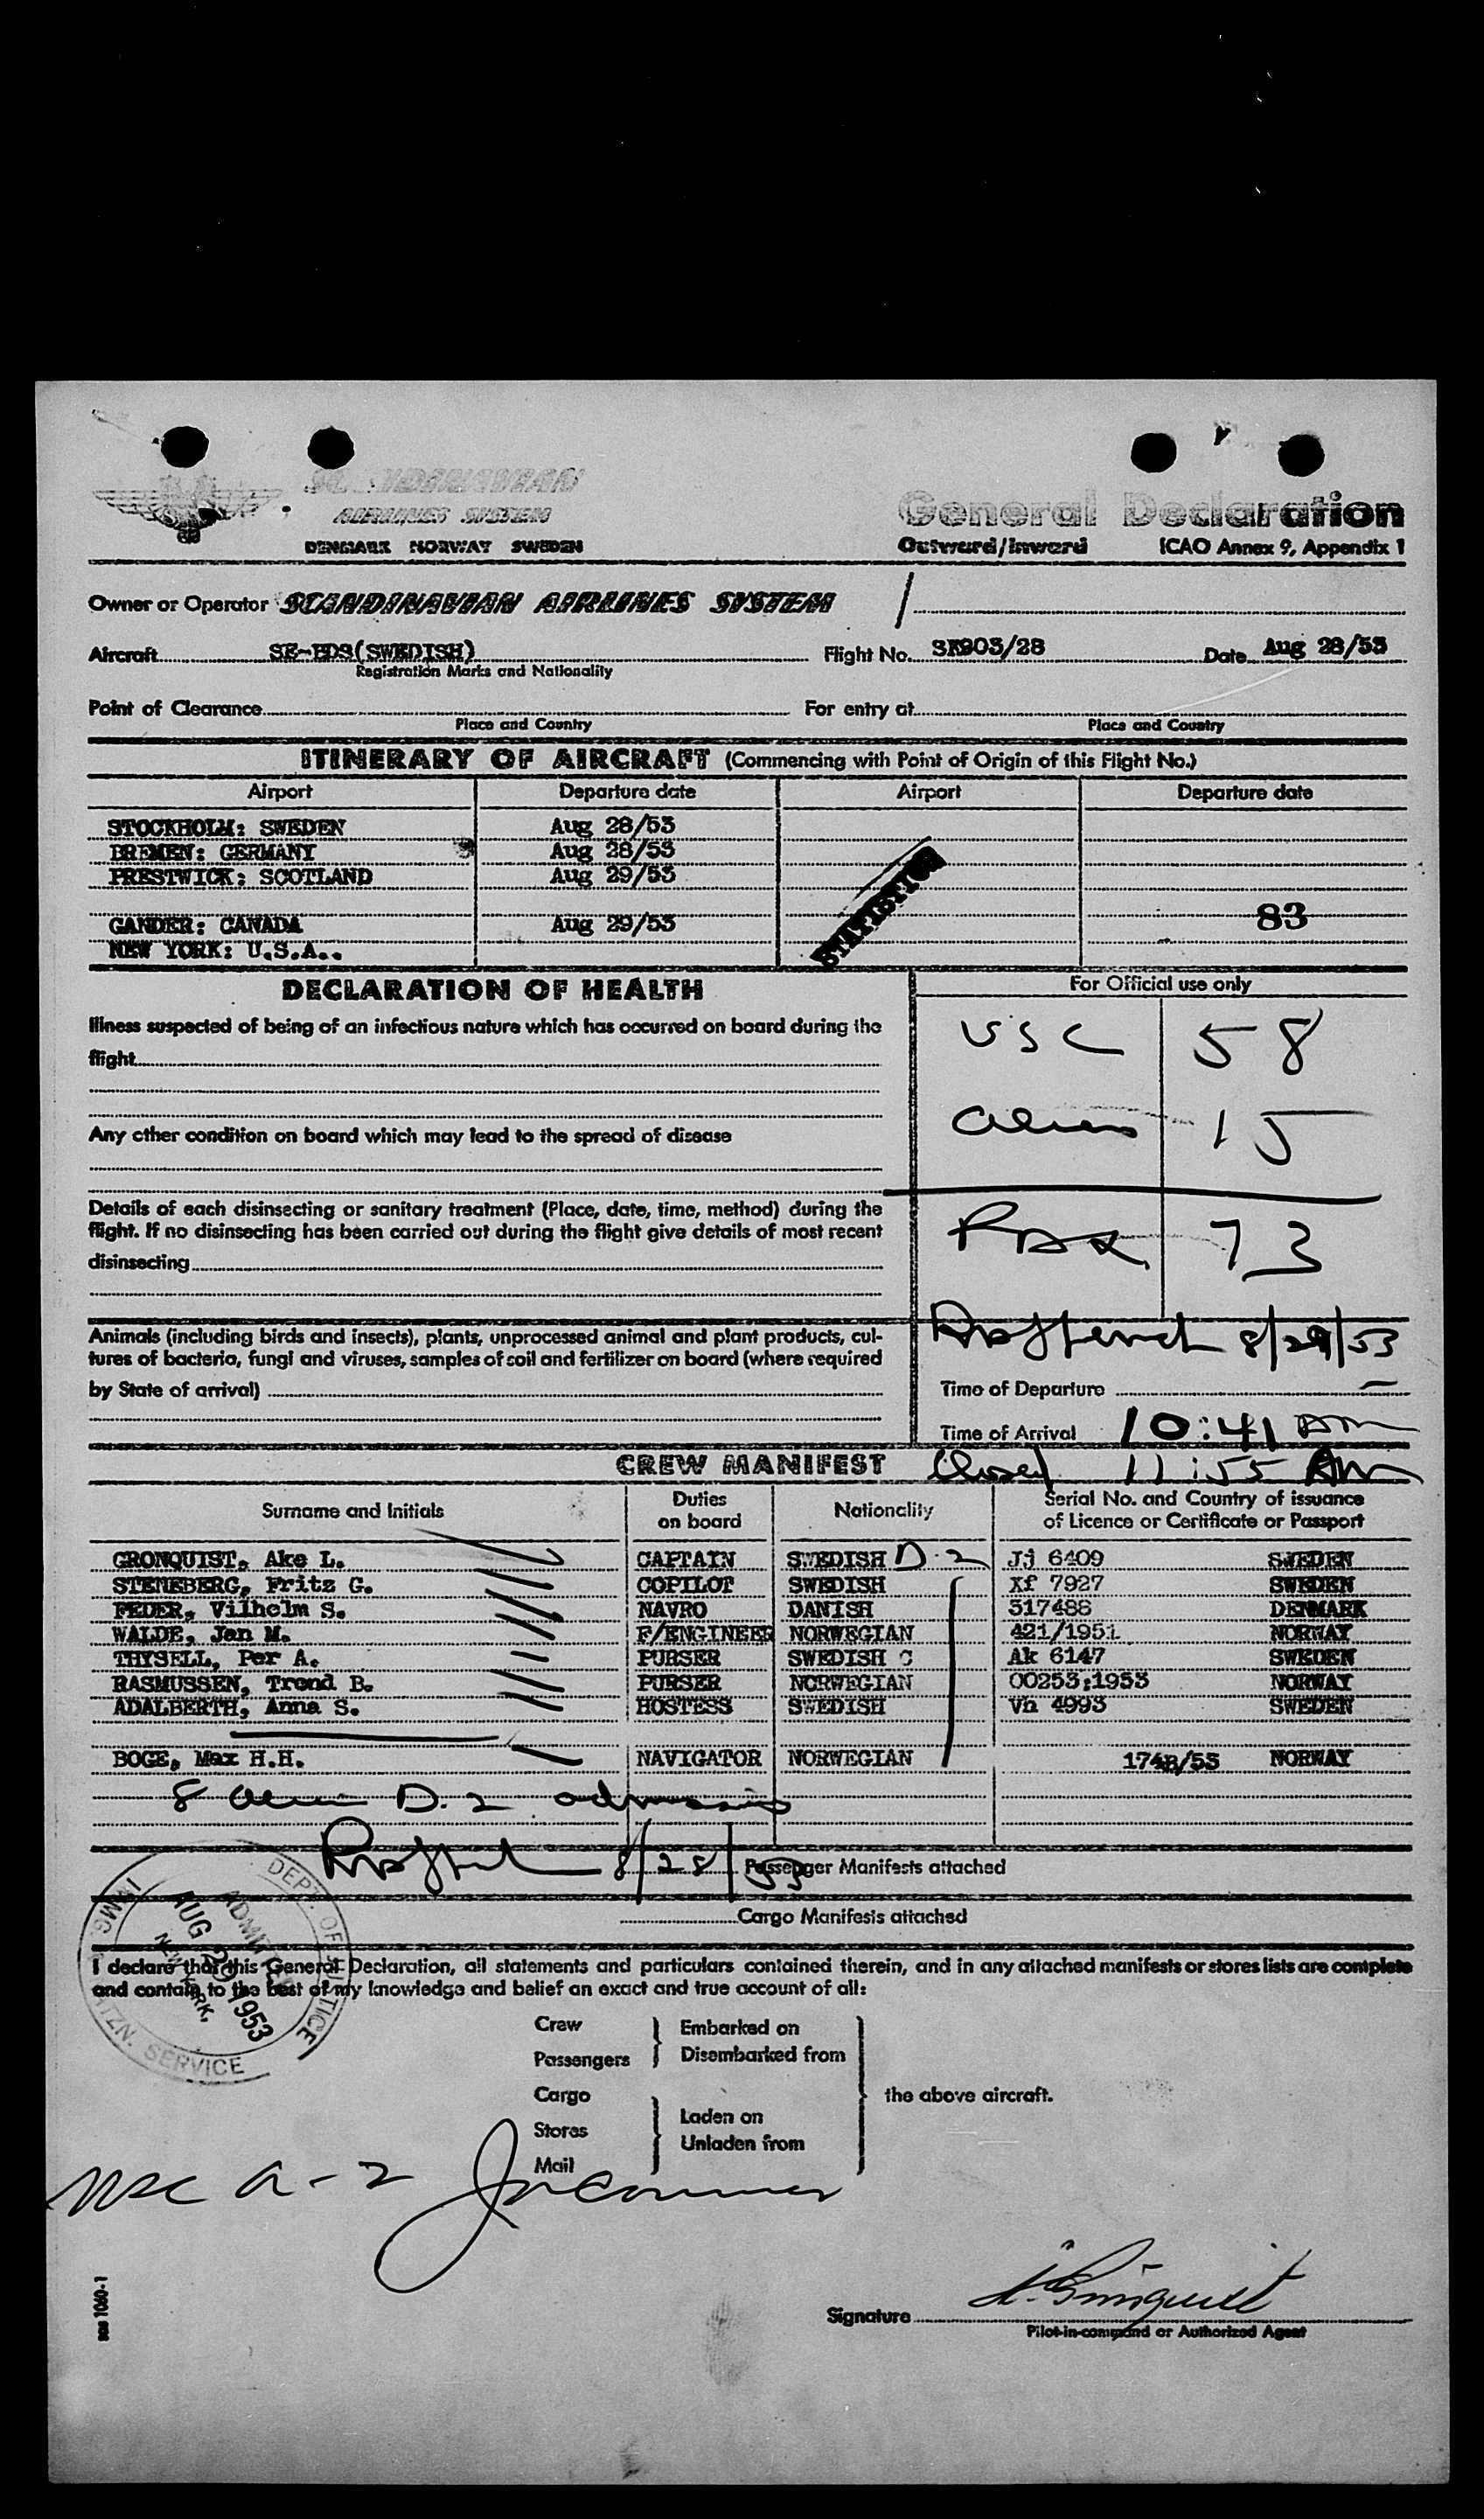 SCANDINAVIAN
AIRLINES SYSTEM
DENMARK NORWAY SWEDEN
General Declaration
Outward/Inward ICAO Annex 9, Appendix 1
Owner or Operator SCANDINAVIAN AIRLINES SYSTEM
Aircraft (SWEDISH) Flight No. SK903/28 Date Aug 28/53
Registration Marks and Nationality
Point of Clearance For entry at
Place and Country Place and Country
ITINERARY OF AIRCRAFT (Commencing with Point of Origin of this Flight No.)
Airport Departure date Airport Departure date
STOCKHOLM: SWEDEN Aug 28/53
BREMEN: GERMANY Aug 28/53
PRESTWICK: SCOTLAND Aug 29/53
STATISTICS
GANDER: CANADA Aug 29/53 83
NEW YORK: U.S.A..
DECLARATION OF HEALTH
For Official use only
Illness suspected of being of an infectious nature which has occurred on board during the
flight
USC 58
Any other condition on board which may lead to the spread of disease
Aliens 15
Details of each disinsecting or sanitary treatment (Place, date, time, method) during the
flight. If no disinsecting has been carried out during the flight give details of most recent
disinsecting
73
Animals (including birds and insects), plants, unprocessed animal and plant products, cul-
tures of bacteria, fungi and viruses, samples of soil and fertilizer on board (where required
by State of arrival)
8/29/53
Time of Departure
Time of Arrival 10:41 AM
CREW MANIFEST Closed 11:55 AM
Surname and Initials Duties on board Nationality Serial No. and Country of issuance of Licence or Certificate or Passport
GRONQUIST, Ake L. CAPTAIN SWEDISH D-2 Jj 6409 SWEDEN
STENEBERG, Fritz G. COPILOT SWEDISH Xf 7927 SWEDEN
FEDER, Vilhelm S. NAVRO DANISH 517488 DENMARK
WALDE, Jan M. F/ENGINEER NORWEGIAN 421/1951 NORWAY
THYSELL, Per A. PURSER SWEDISH Ak 6147 SWEDEN
RASMUSSEN, Trond B. PURSER NORWEGIAN 00253:1953 NORWAY
ADALBERTH, Anna S. HOSTESS SWEDISH Vh 4993 SWEDEN
BOGE, Max H.H. NAVIGATOR NORWEGIAN 1748/53 NORWAY
8 D.2
8/28/53 Passenger Manifests attached
Cargo Manifests attached
DEPT. OF JUSTICE
IMMIG. NATZN. SERVICE
ADMITTED
AUG 29 1953
NEW YORK,
I declare that this General Declaration, all statements and particulars contained therein, and in any attached manifests or stores lists are complete
and contain to the best of my knowledge and belief an exact and true account of all:
Crew Embarked on
Passengers Disembarked from
Cargo the above aircraft.
Stores Laden on
Unladen from
Mail
A-2
Signature
Pilot-in-command or Authorized Agent
sas 1060-1